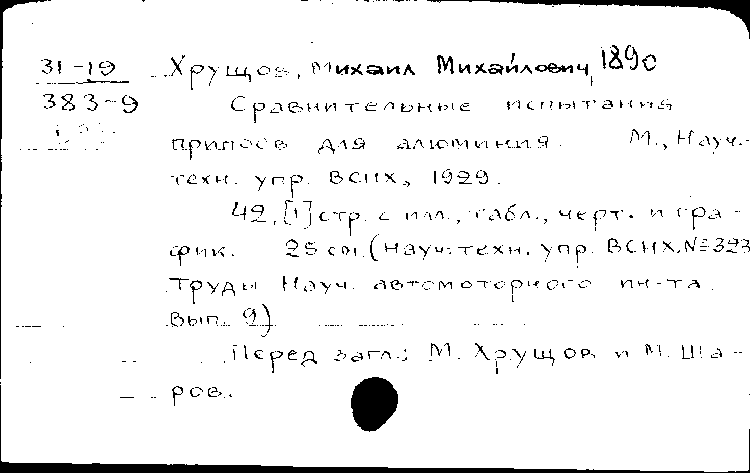 31-19 Хрущов, Михаил Михайлович, 1890
383-9 Сравнительные испытания
припоев для алюминия. М., Науч.-
техн. упр. ВСНХ, 1929.
42, [1] стр. с илл., табл., черт. и гра-
фик. 25 см. (Науч.-техн. упр. ВСНХ. №323
Труды Науч. автомоторного ин-та.
Вып. 9)
Перед загл.: М. Хрущов и М. Ша-
ров.